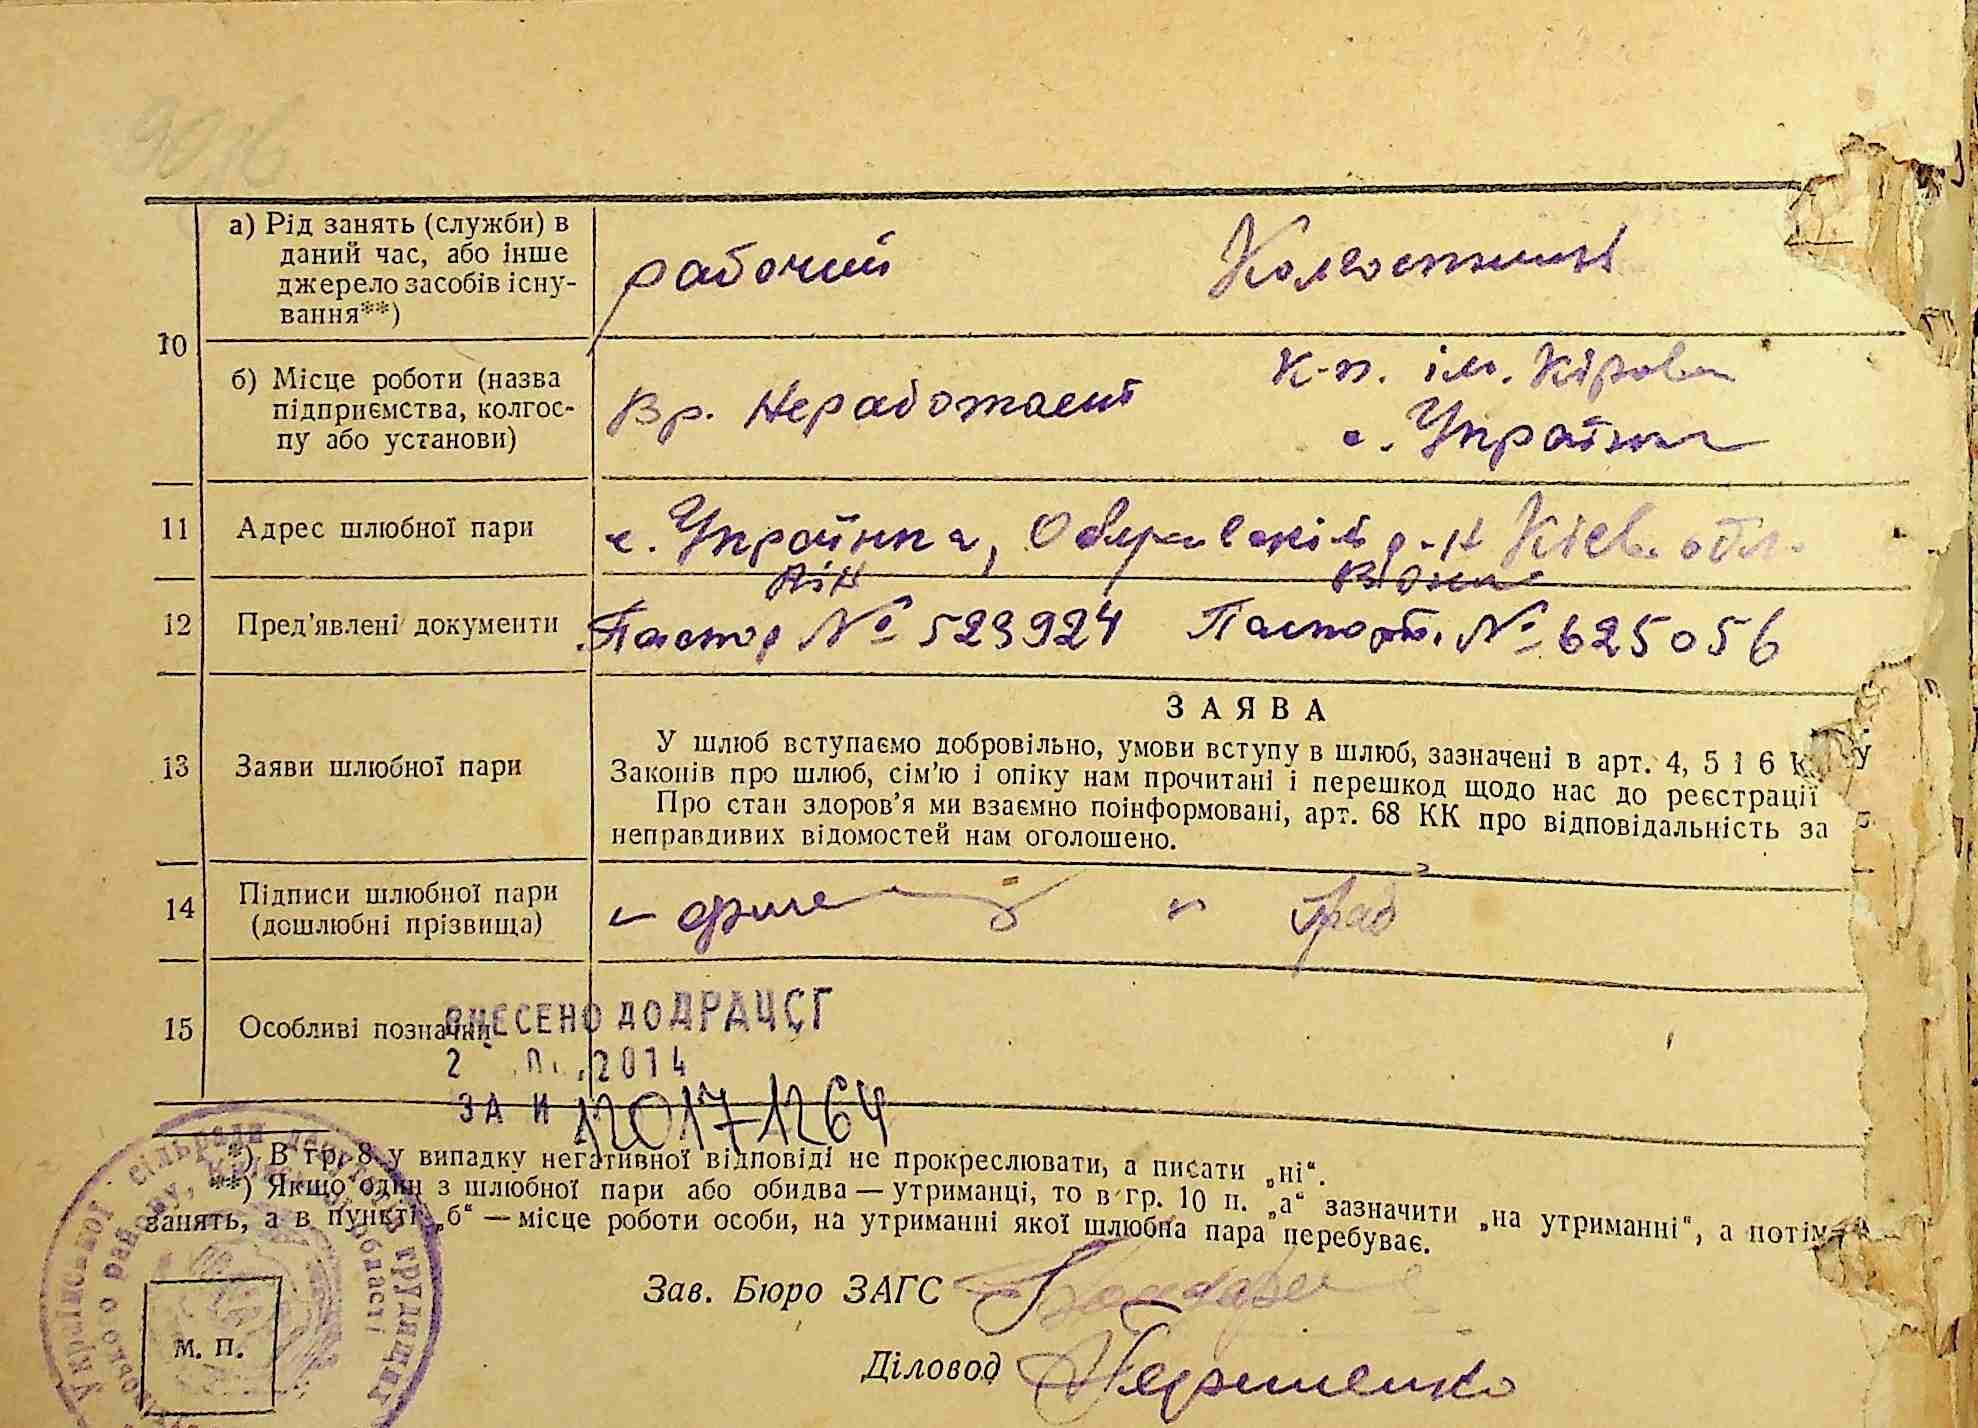 а) Рід занять (служби) в
даний час, або інше
джерело засобів існу-
вання**)
рабочий
Колгоспник
10
б) Місце роботи (назва
підприємства, колгос-
пу або установи)
Вр. Неработает
к-п. ім. Кірова
с. Українка
11 Адрес шлюбної пари
с. Українка, р-н Київ. обл.
Він Вона
12 Пред'явлені документи
Паспор № 523924 Паспорт. № 625056
13 Заяви шлюбної пари
ЗАЯВА
У шлюб вступаємо добровільно, умови вступу в шлюб, зазначені в арт. 4, 5 і 6 К у
Законів про шлюб, сім'ю і опіку нам прочитані і перешкод щодо нас до реєстрації
Про стан здоров'я ми взаємно поінформовані, арт. 68 КК про відповідальність за
неправдивих відомостей нам оголошено.
14 Підписи шлюбної пари
(дошлюбні прізвища)
15 Особливі позначки
ВНЕСЕНО ДО ДРАЦСГ
2014
ЗА N 120171264
*) В гр. 8 у випадку негативної відповіді не прокреслювати, а писати „ні“.
**) Якщо один з шлюбної пари або обидва — утриманці, то в гр. 10 п. „а“ зазначити „на утриманні“, а потім
занять, а в пункті „б“ — місце роботи особи, на утриманні якої шлюбна пара перебуває.
Зав. Бюро ЗАГС
Діловод
м. п.
Української сільради депутатів трудящих
району, Київської області